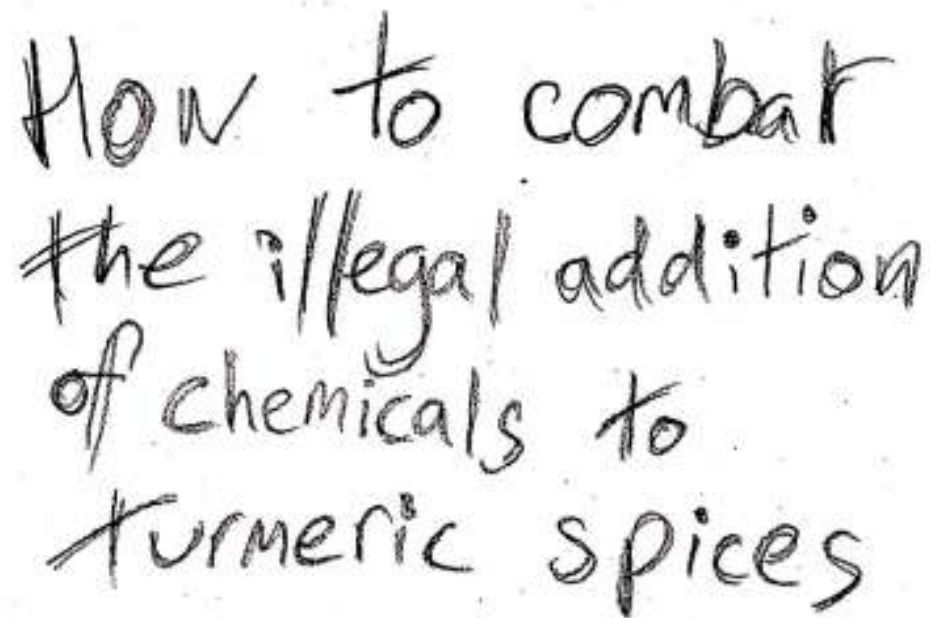 How to combat
the illegal addition
of chemicals to
turmeric spices